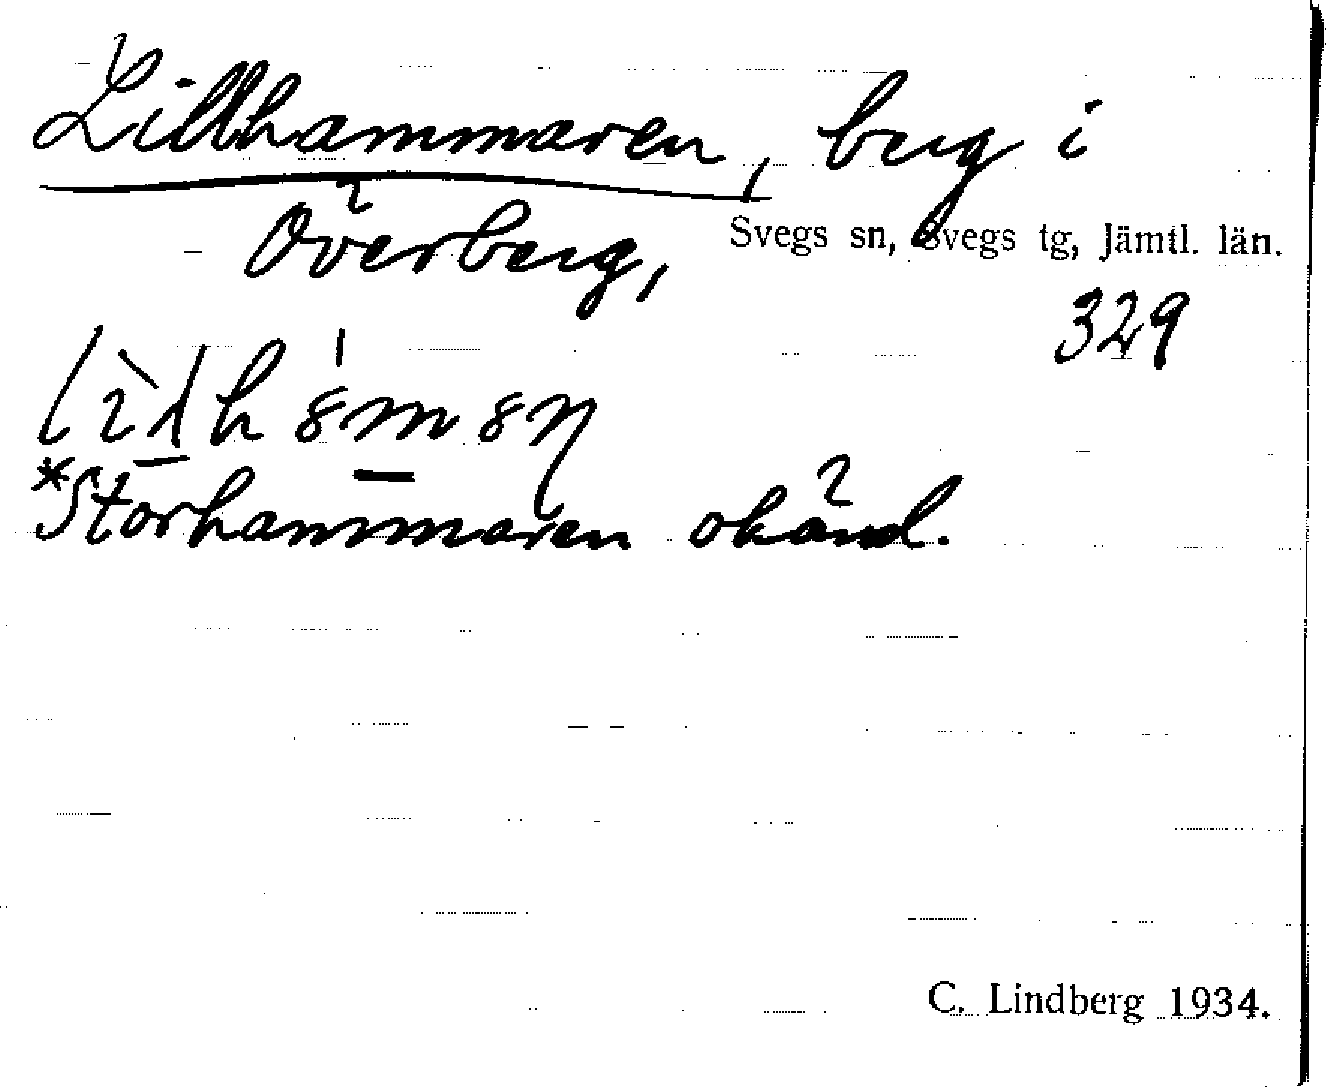 Lillhammaren, berg i
Överberg, Svegs sn, Svegs tg, Jämtl. län.
329
*Storhammaren okänd.
C. Lindberg 1934.